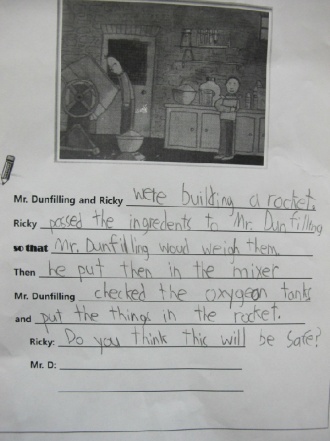 Mr. Dunfilling and Ricky were building a rocket.
Ricky passed the ingredents to Mr. Dunfilling
so that Mr. Dunfilling woud weigh them.
Then he put then in the mixer
Mr. Dunfilling checked the oxygeon tanks
and put the things in the rocket.
Ricky: Do you think this will be safe?
Mr. D: